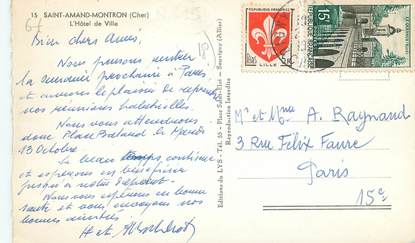 15 SAINT-AMAND-MONTRON (Cher)
L'Hôtel de Ville
Bien chers Amis,
Nous pensons rentrer
la semaine prochaine à Paris
et aurons le plaisir de reprendre
nos réunions habituelles.
Nous vous attendrons
donc Place Balard le Mardi
13 Octobre.
Le beau temps continue
et espérons en bénéficier
jusqu'à notre départ.
Nous vous espérons en bonne
santé et vous envoyons nos
bonnes amitiés
H et
Editions du LYS - Tél. 55 - Place Saint-Eloi - Souvigny (Allier)
Reproduction Interdite
REPUBLIQUE FRANÇAISE
LILLE
15F
Mr et Mme A. Raynaud
3 Rue Félix Faure
Paris
15e